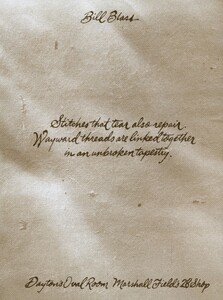 Bill Blass
Stitches that tear also repair.
Wayward threads are linked together
in an unbroken tapestry.
Dayton's Oval Room Marshall Field's 28 Shop